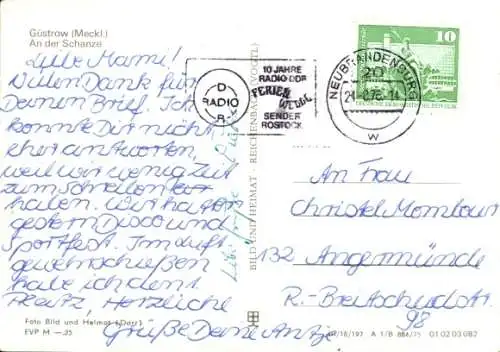 Güstrow (Meckl.)
An der Schanze
Liebe Mami!
Vielen Dank für
Deinen Brief. Ich
konnte Dir nicht
eher antworten,
weil wir wenig Zeit
zum Schreiben
haben. Wir hatten
gestern Disco und
Sportfest. Im Luft
gewehrschießen
habe ich den 1.
Platz, Herzliche
Grüße Deine Antje
Foto Bild und Heimat (Darr)
EVP M —,25
BILD UND HEIMAT REICHENBACH (VOGTL)
D
RADIO
R
10 JAHRE
RADIO DDR
FERIEN
WELLE
SENDER
ROSTOCK
NEUBRANDENBURG
20
w
10
DEUTSCHE DEMOKRATISCHE REPUBLIK
An Frau
Christel Mombour
132 Angermünde
R.-Breitscheidstr.
92
A 1/B 886/75 01 02 03 082